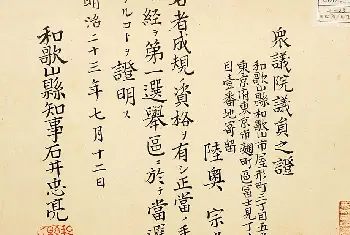 衆議院議員之證
和歌山縣和歌山市屋形町二丁目五
東京府東京市麹町區富士見丁
目壹番地寄留
陸奥宗
右者成規ノ資格ヲ有シ正當ノ手
経テ第一選擧區ニ於テ當選
ルコトヲ證明ス
明治二十三年七月十二日
和歌山縣知事石井忠亮